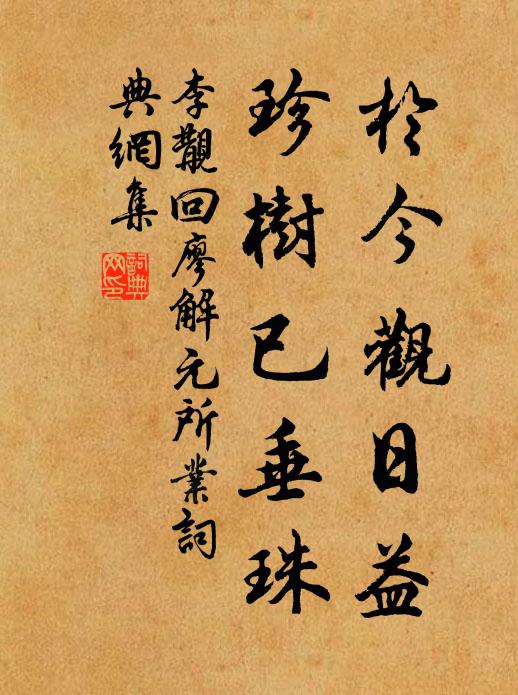 於今觀日益
珍樹已垂珠
李覯回廖解元所業詞
典網集
詞典
网印